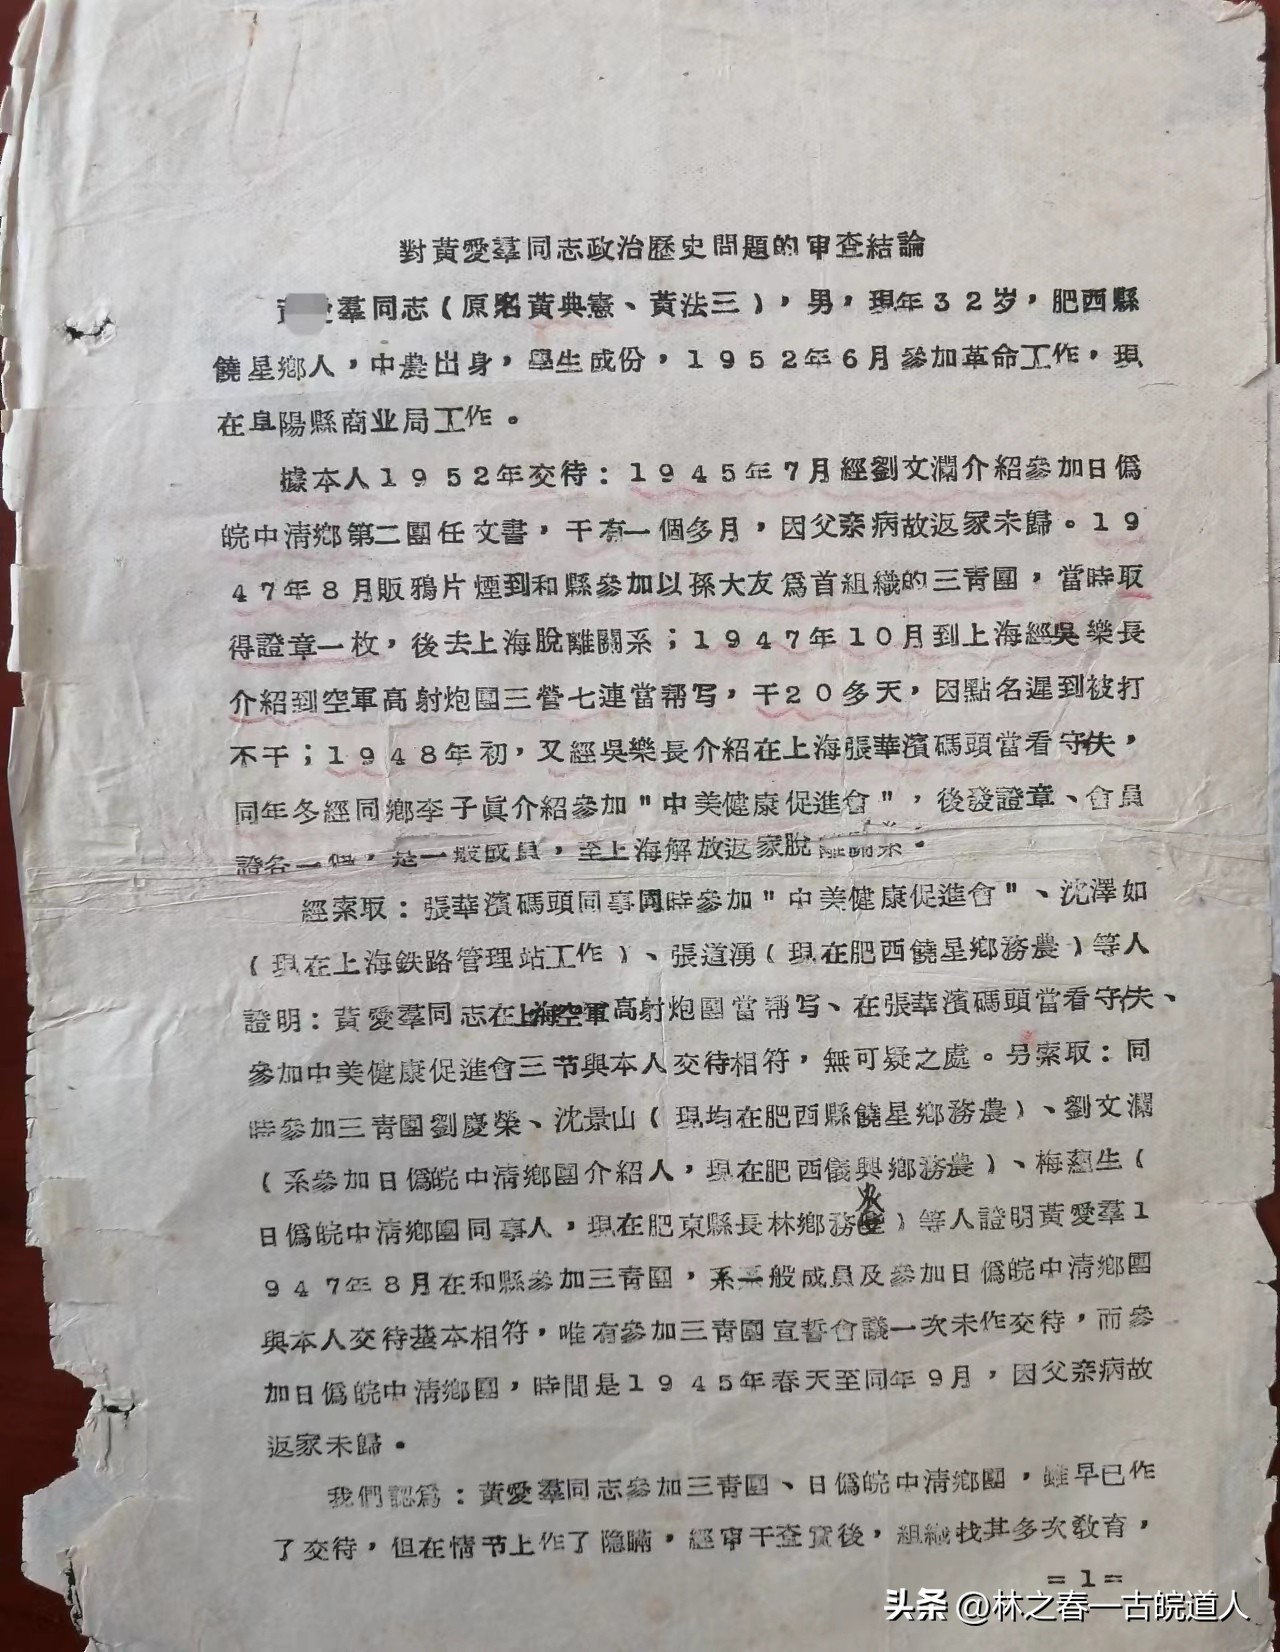 對黃愛羣同志政治歷史問題的审查結論
羣同志(原名黃典憲、黃法三),男,現年32岁,肥西縣
饒星鄉人,中農出身,學生成份,1952年6月參加革命工作,現
在阜陽縣商业局工作。
據本人1952年交待:1945年7月經劉文瀾介紹參加日僞
皖中清鄉第二團任文書,干有一個多月,因父亲病故返家未歸。19
47年8月販鴉片煙到和縣參加以孫大友爲首組織的三青團,當時取
得證章一枚,後去上海脫離關系;1947年10月到上海經吳樂長
介紹到空軍高射炮團三營七連當帮写,干20多天,因點名遲到被打
不干;1948年初,又經吳樂長介紹在上海張華濱碼頭當看守伕,
同年冬經同鄉李子眞介紹參加"中美健康促進會",後發證章、會員
證各一個,是一般成員,至上海解放返家脫離關系。
經索取:張華濱碼頭同事同時參加"中美健康促進會"、沈澤如
(現在上海鉄路管理站工作)、張道湧(現在肥西饒星鄉務農)等人
證明:黃愛羣同志在上海空軍高射炮團當帮写、在張華濱碼頭當看守伕、
參加中美健康促進會三节與本人交待相符,無可疑之處。另索取:同
時參加三青團劉慶榮、沈景山(現均在肥西縣饒星鄉務農)、劉文瀾
(系參加日僞皖中清鄉團介紹人,現在肥西儀興鄉務農)、梅蘊生(
日僞皖中清鄉團同事人,現在肥東縣長林鄉務农)等人證明黃愛羣1
947年8月在和縣參加三青團,系一般成員及參加日僞皖中清鄉團
與本人交待基本相符,唯有參加三青團宣誓會議一次未作交待,而參
加日僞皖中清鄉團,時間是1945年春天至同年9月,因父亲病故
返家未歸。
我們認爲:黃愛羣同志參加三青團、日僞皖中清鄉團,雖早已作
了交待,但在情节上作了隐瞞,經审干查實後,組織找其多次教育,
=1=
头条 @林之春一古皖道人